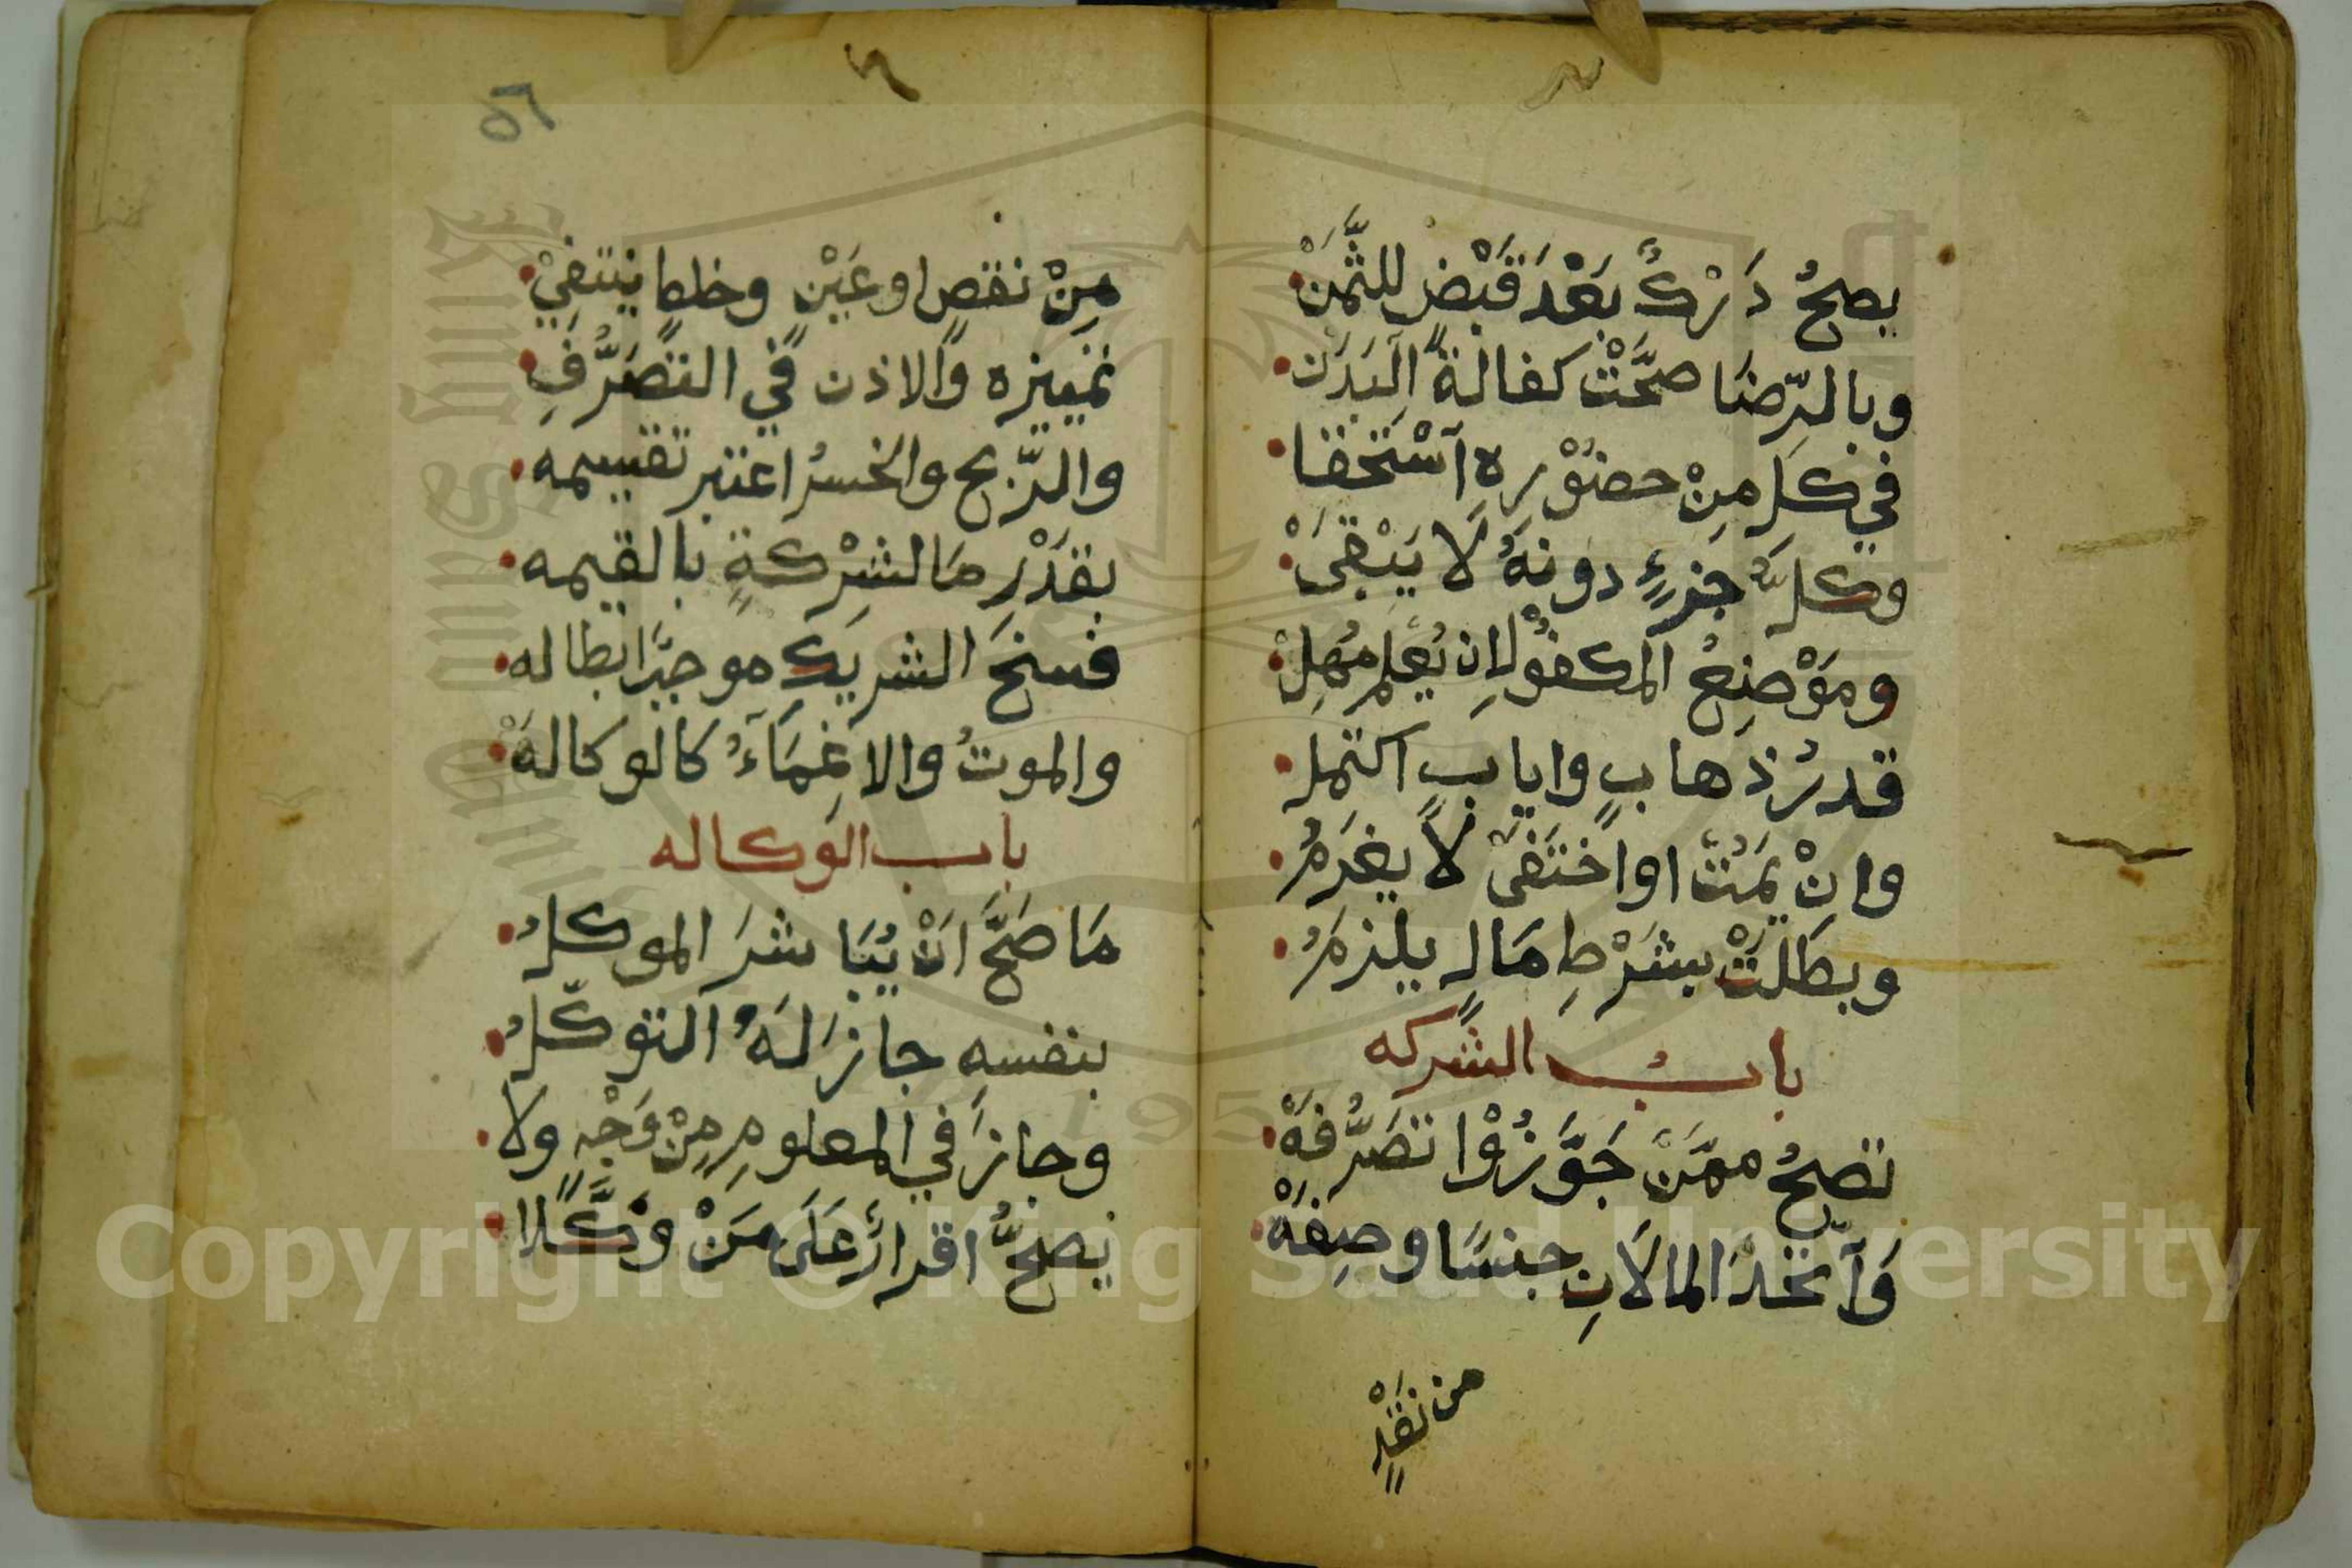 يصحُ دَرْكٌ بَعْدَ قَبْضٍ للثَّمَنْ
وبالرِّضَا صحَّتْ كفالةُ البَدَنْ
في كلِ مِنْ حضُوْرِهِ آسْتُحِقَّا
وكلُّ جزءٍ دونهُ لَا يَبْقَىْ
ومَوْضِعُ المكفُوْلِ اِن يُعلم مُهِلْ
قدرُ ذهابٍ وايابٍ اكتمل
وانْ يَمُتْ اواخْتَفَىْ لاَ يغرَمُ
وبطلَتْ بشَرْطِ مَالٍ يلزمَرُ
بابُ الشركه
تصحُ ممَّنْ جَوَّزُوْا تصَرُّفَهْ
وَآتّحَدَ المالاَنِ جنسًا وصِفَهْ
من نقْدٍ
٥٦
مِنْ نقصٍ اوعَيْنٍ وخلطاً ينتفيْ
تمييزه والاذن في التصَرُّفِ
والرّبح والخسرُ اعتبر تقسيمه
بقدْرِ مَا لشِرْكةٍ بالقيمه
فسخَ الشريكِ موجبًا ابطاله
والموتُ والاغِمَآءُ كالوكالهْ
باب الوكاله
مَا صَحَّ اَنْ يُبَاشرَ الموكلُ
بنفسهِ جازَ لهُ التوكّلُ
وجازَ في المعلومِ مِنْ وَجْهٍ ولا
يَصحُّ اقرارٌ عَلَى مَنْ وَكَّلا
Copyright © King Saud University
1957